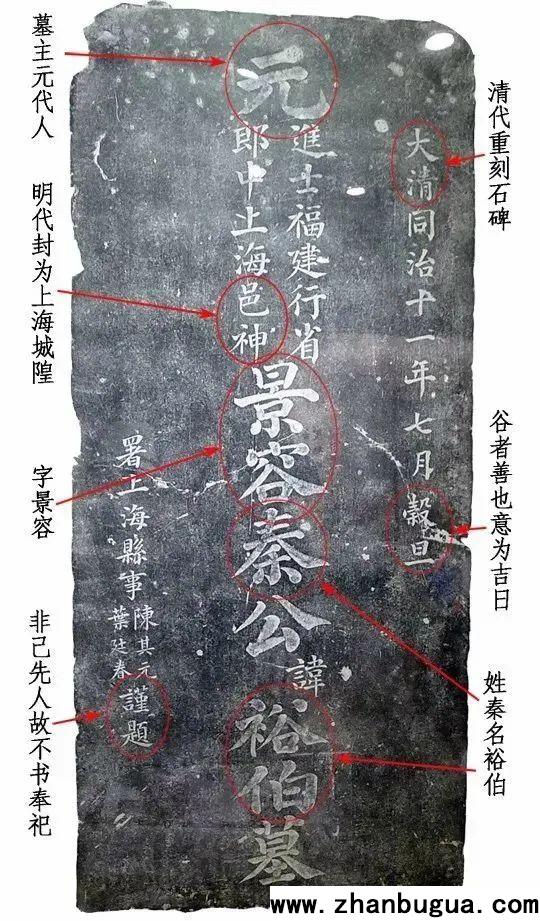 清代重刻石碑
谷者善也意为吉日
姓秦名裕伯
大清同治十一年七月穀旦
元
進士福建行省
郎中上海邑神
景容秦公
諱
裕伯墓
署上海縣事
陳其元
葉廷眷
謹題
墓主元代人
明代封为上海城隍
字景容
非己先人故不书奉祀
www.zhanbugua.com